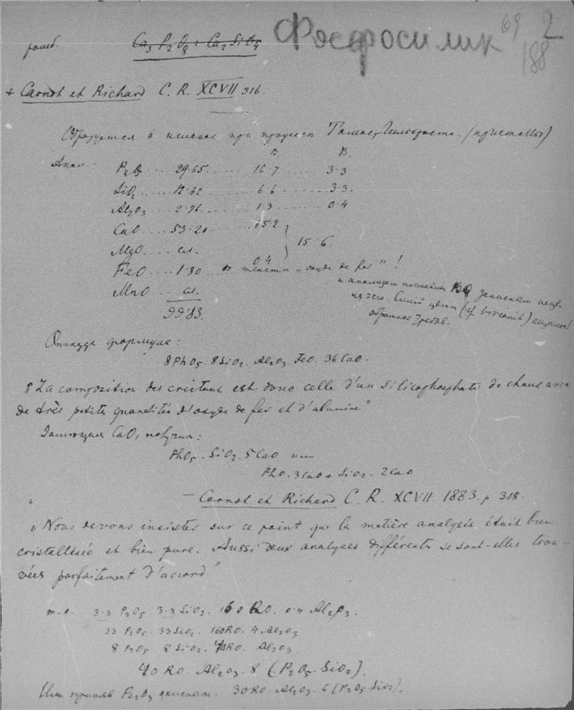 ромб Ca₃P₂O₈ + Ca₂SiO₄ Фосфосилик 69 2
188
+ Carnot et Richard C. R. XCVII 316.
Образуется в шлаках при процессе (кристаллы)
Анал. P₂O₅ 29.65 16.7 3.3
SiO₂ 12.42 6.6 3.3
Al₂O₃ 2.76 1.3 0.4
CaO 53.20 15.2
15.6.
MgO сл.
FeO 1.80 0.4 в тексте „oxyde de fer" !
MnO сл.
99.83
Откуда формула:
8PhO₅ 8SiO₂ Al₂O₃ FeO 36CaO.
"La composition des cristaux est donc celle d'un silicophosphate de chaux avec
de très petites quantités d'oxyde de fer et d'alumine"
CaO, получим:
PhO₅ SiO₂ 5CaO или
PhO₅ 3CaO + SiO₂ 2CaO
— Carnot et Richard C. R. XCVII 1883 p 318
„Nous devons insister sur ce point que la matière analysée était bien
cristallisée et bien pure. Aussi deux analyses différentes se sont-elles trou-
vées parfaitement d'accord"
т.е. 3.3 P₂O₅ 3.3 SiO₂ 16.0 RO 0.4 Al₂O₃.
33 P₂O₅ 33 SiO₂ 160 RO 4 Al₂O₃
8 P₂O₅ 8 SiO₂ 40 RO Al₂O₃
40 RO Al₂O₃ 8 (P₂O₅ SiO₂).
Или 30 RO Al₂O₃ 6 (P₂O₅ SiO₂).